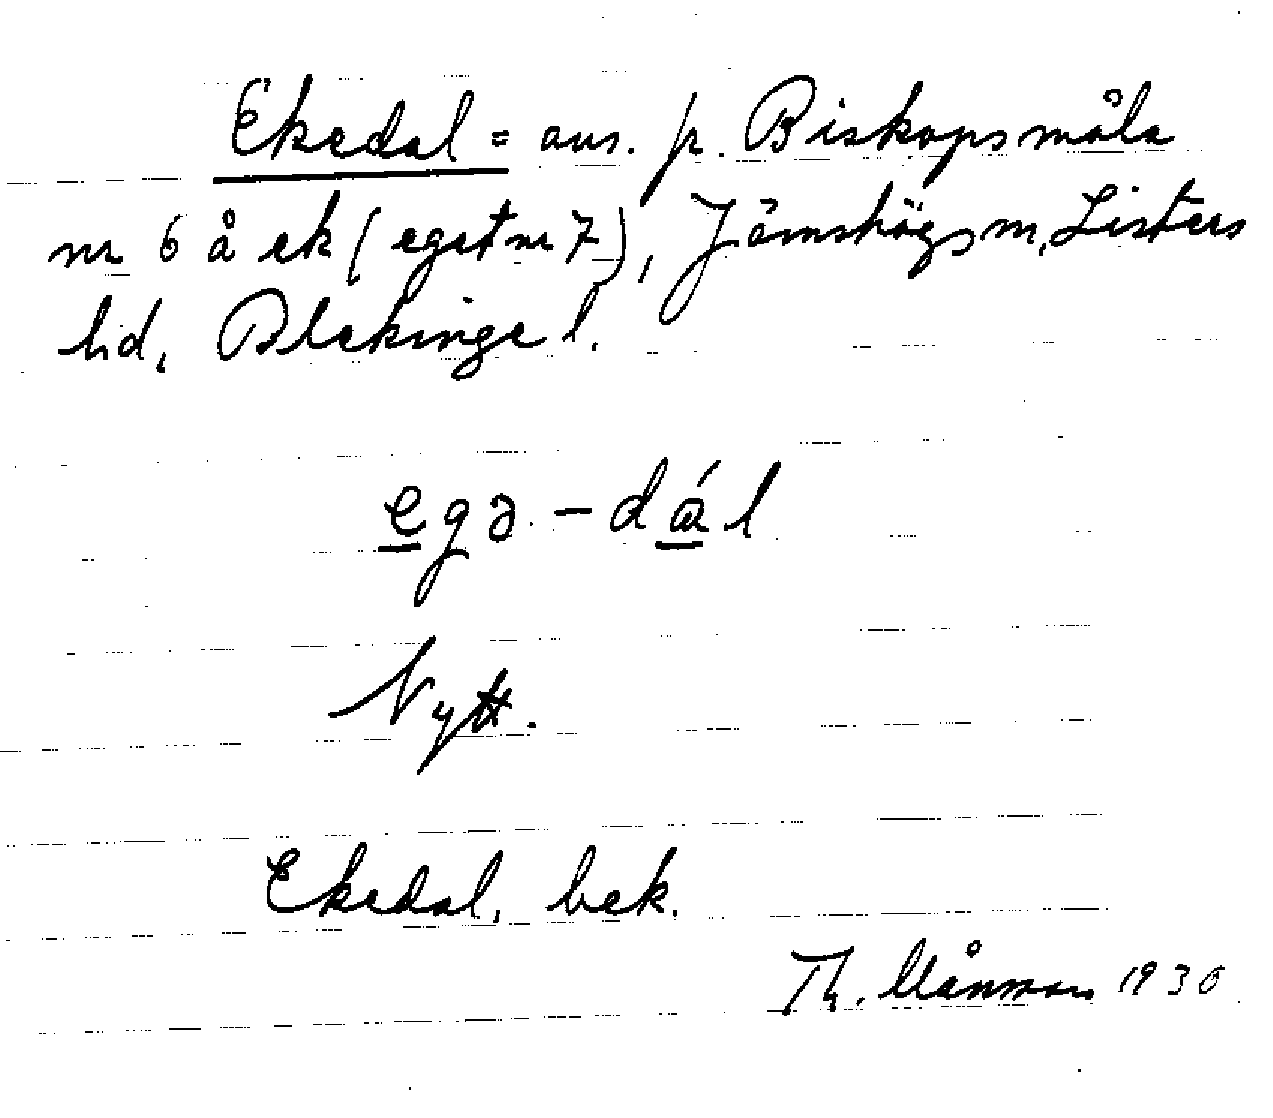 Ekedal = avs. fr. Biskopsmåla
nr 6 å ek (eget nr 7), Jämshögs sn, Listers
hd, Blekinge l.
egə - dál
Nytt.
Ekedal, bek.
Th. Månsson 1930